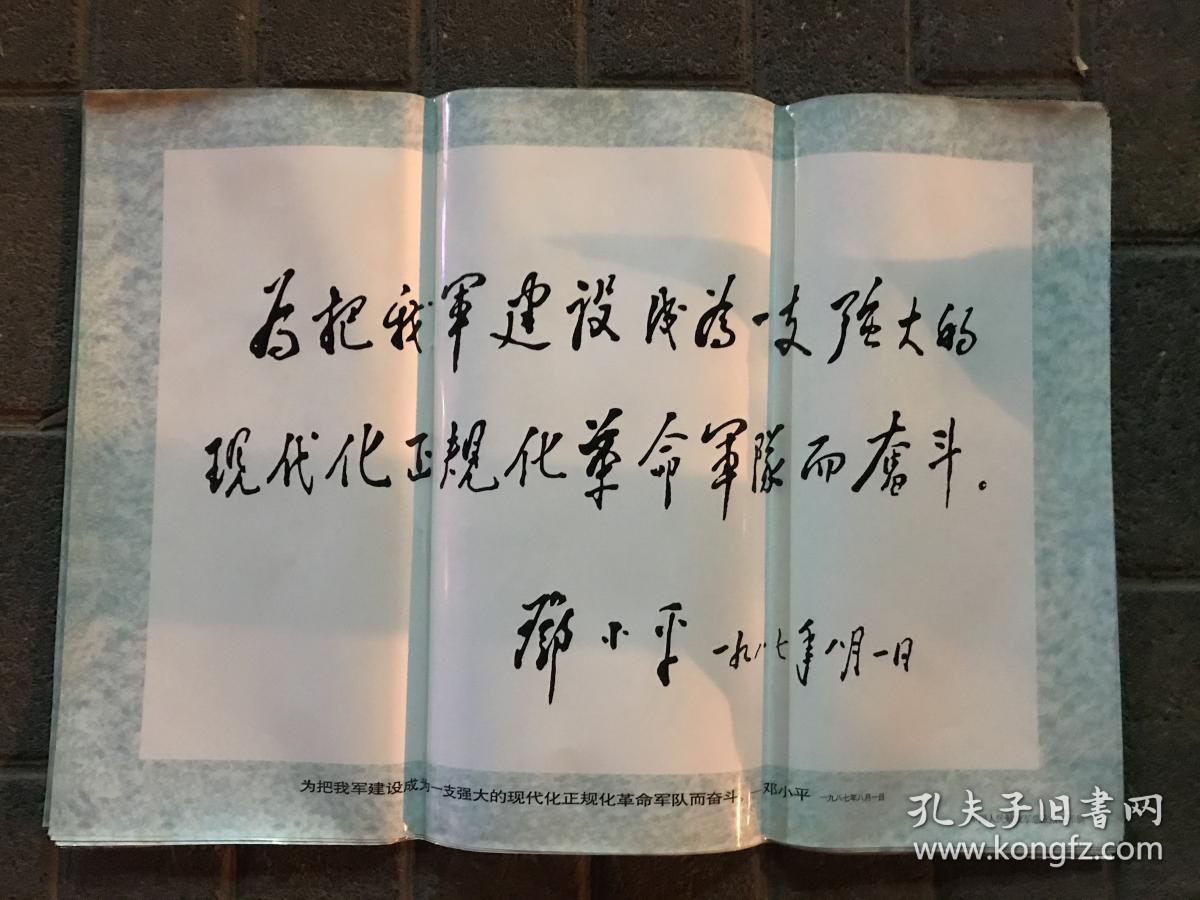 为把我軍建设成為一支强大的
现代化正规化革命軍隊而奮斗。
鄧小平 一九八七年八月一日
为把我军建设成为一支强大的现代化正规化革命军队而奋斗 —邓小平 一九八七年八月一日
孔夫子旧書网
www.kongfz.com